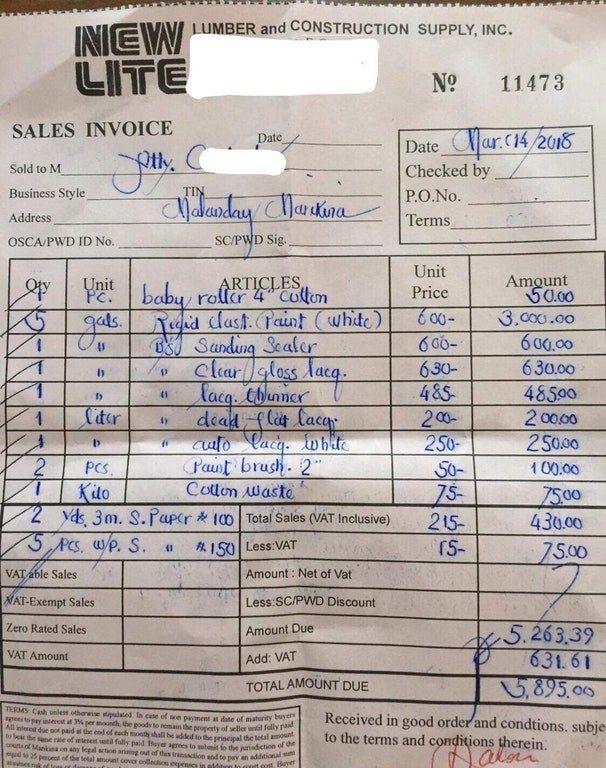 NEW LITE LUMBER and CONSTRUCTION SUPPLY, INC.
Nº 11473
SALES INVOICE
Date
Date Mar. 14/2018
Sold to M
Checked by
Business Style TIN
P.O.No.
Address Malanday Marikina
Terms
OSCA/PWD ID No. SC/PWD Sig.
Qty Unit ARTICLES Unit Price Amount
1 Pc. baby roller 4" cotton 50.00
5 gals. Paint (White) 600- 3,000.00
1 " Sanding Sealer 600- 600.00
1 " " clear gloss lacq. 630- 630.00
1 " " lacq. thinner 485- 485.00
1 liter " dead flat lacq. 200- 200.00
1 " " auto lacq. white 250- 250.00
2 pcs. Paint brush. 2" 50- 100.00
1 Kilo Cotton waste 75- 75.00
2 yds. 3m. S. Paper # 100 Total Sales (VAT Inclusive) 215- 430.00
5 pcs. w/p. S. " # 150 Less:VAT 15- 75.00
VATable Sales Amount : Net of Vat
VAT-Exempt Sales Less:SC/PWD Discount
Zero Rated Sales Amount Due 5,263.39
VAT Amount Add: VAT 631.61
TOTAL AMOUNT DUE 5,895.00
TERMS: Cash unless otherwise stipulated. In case of non payment at date of maturity buyers
agrees to pay interest at 3% per month, the goods to remain the property of seller until fully paid.
All interest due not paid at the end of each month shall be added to the principal the total amount.
to bear the same rate of interest until fully paid. Buyer agrees to submit to the jurisdiction of the
courts of Marikina on any legal action arising out of this transaction and to pay an additional sum
equal to 25 percent of the total amount
Received in good order and conditions. subje
to the terms and conditions therein.